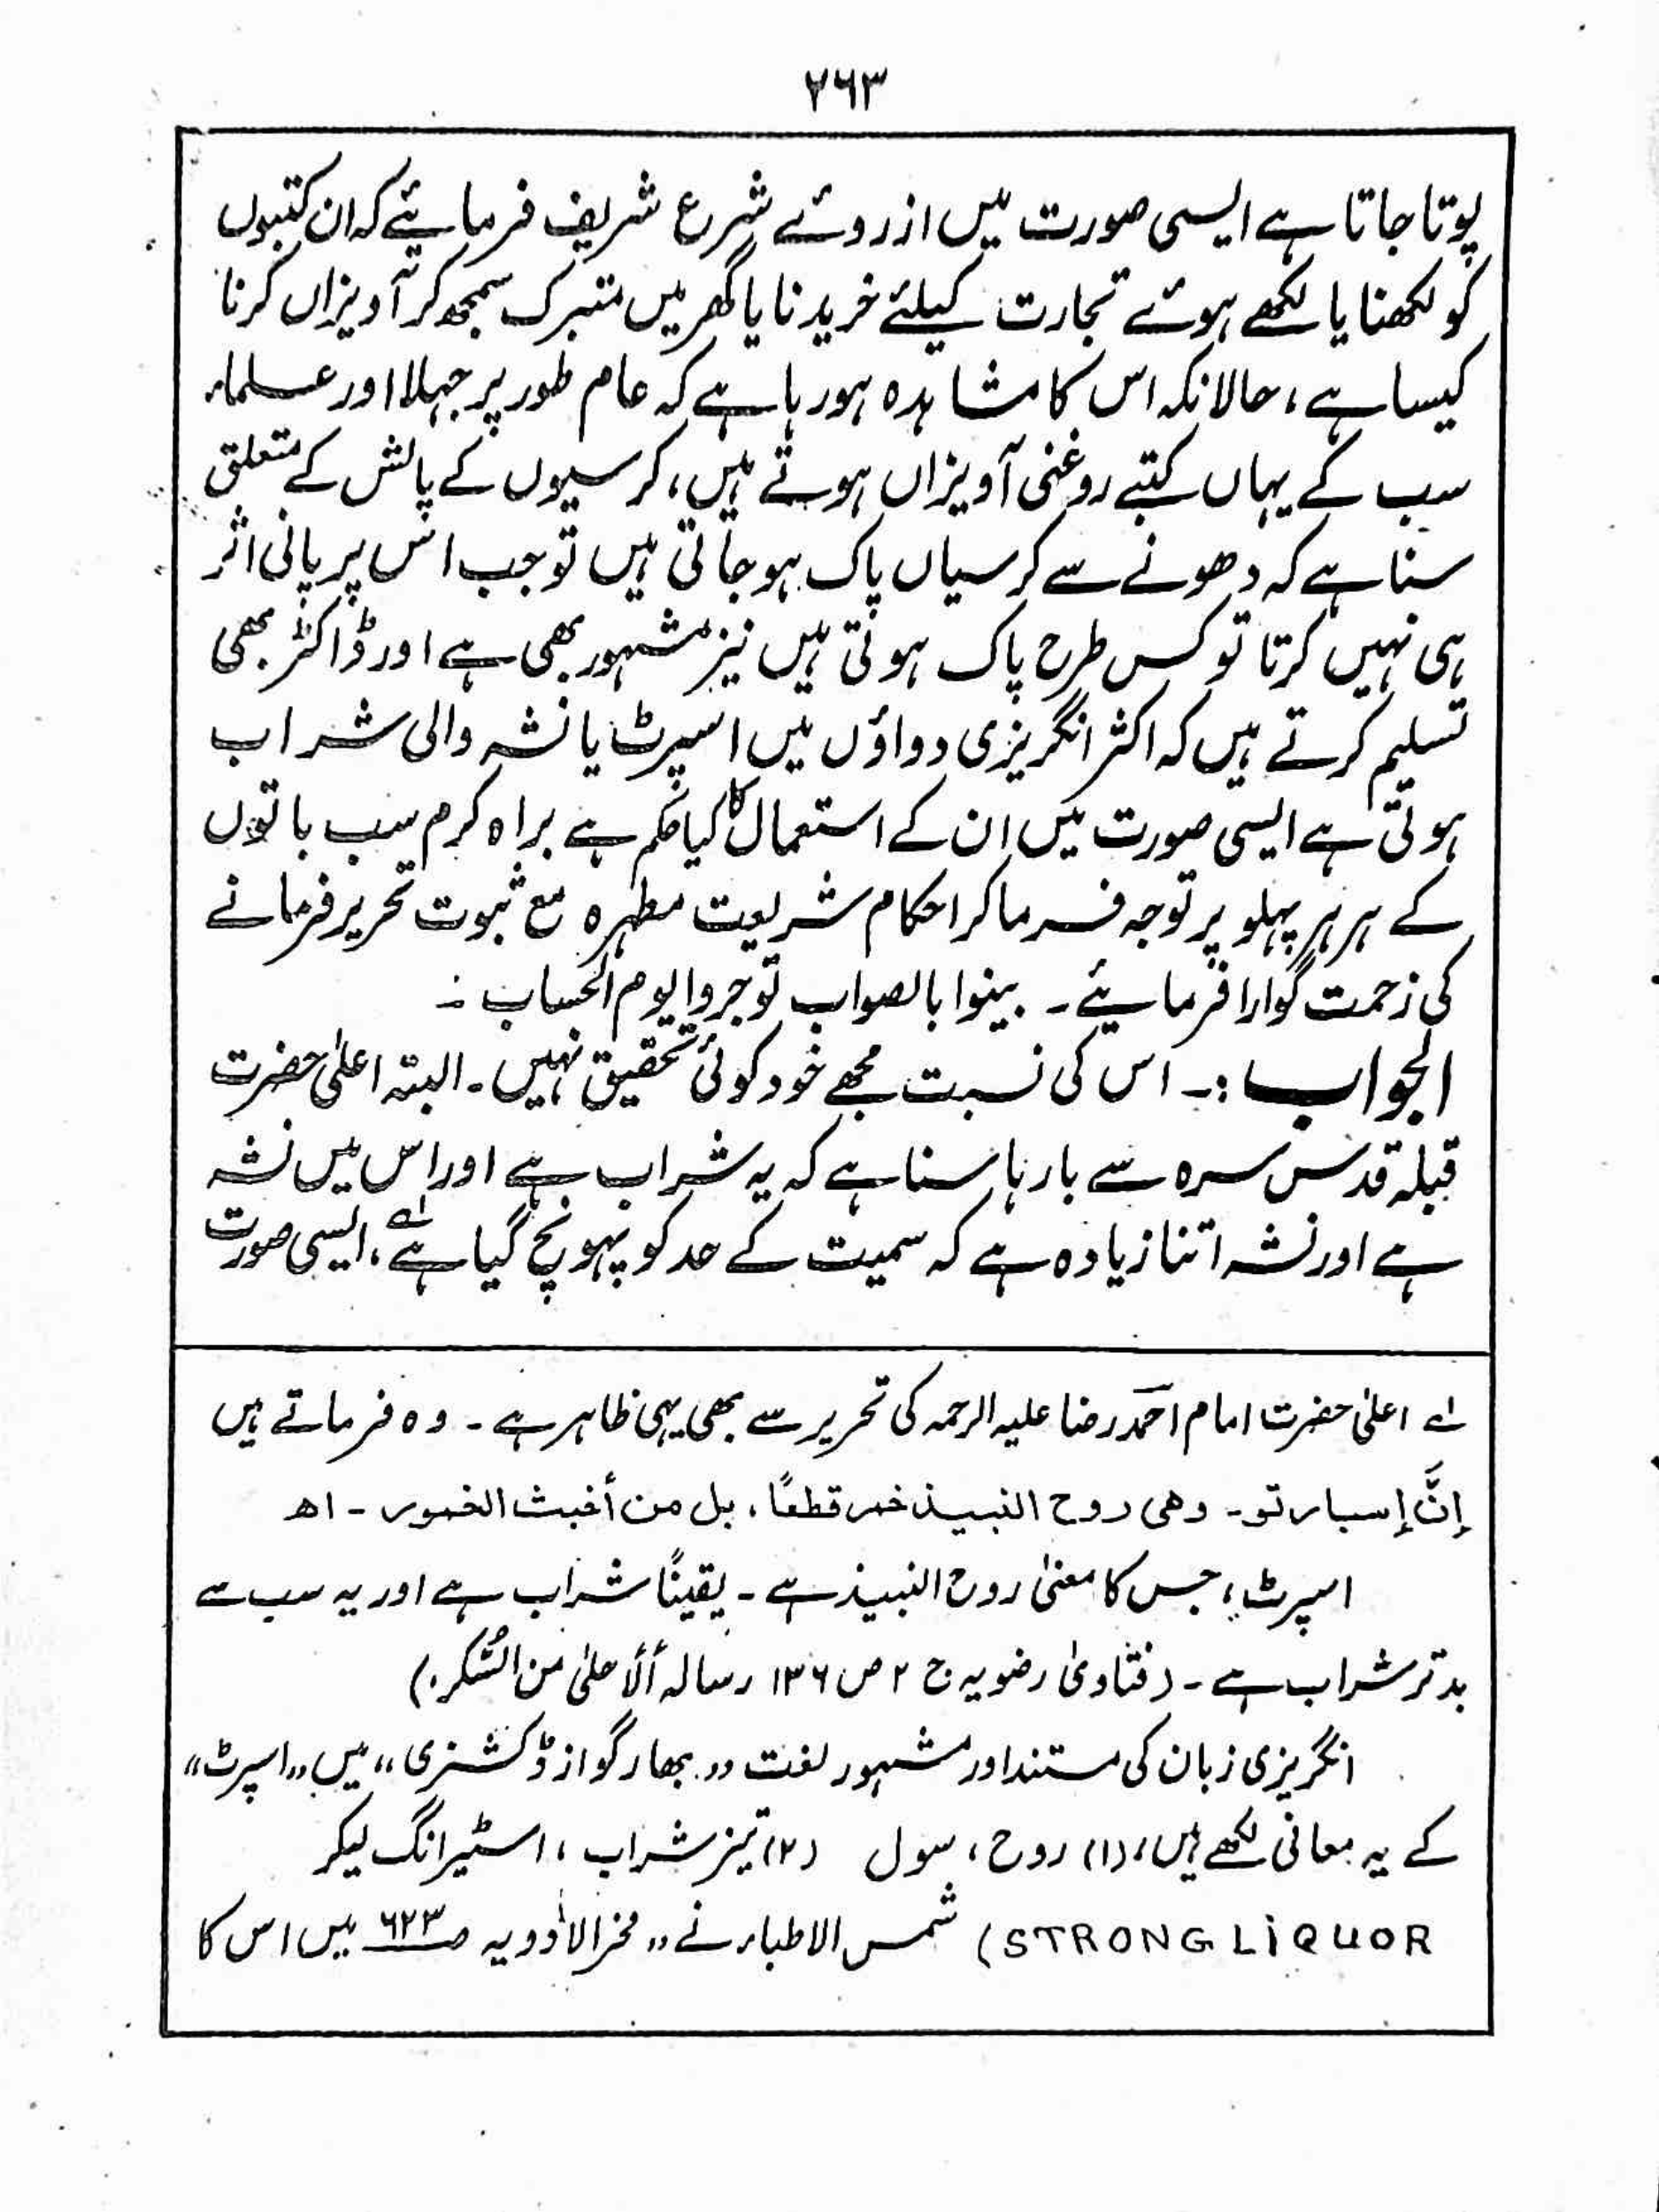 ۲۶۳
پوتا جاتا ہے ایسی صورت میں ازروئے شرع شریف فرمایئے کہ ان کتبوں
کو لکھنا یا لکھے ہوئے تجارت کیلئے خریدنا یا گھر میں متبرک سمجھ کر آویزاں کرنا
کیسا ہے، حالانکہ اس کا مشاہدہ ہورہا ہے کہ عام طور پر جہلا اور علماء
سب کے یہاں کتبے روغنی آویزاں ہوتے ہیں، کرسیوں کے پالش کے متعلق
سنا ہے کہ دھونے سے کرسیاں پاک ہوجاتی ہیں تو جب اس پر پانی اثر
ہی نہیں کرتا تو کس طرح پاک ہوتی ہیں نیز مشہور بھی ہے اور ڈاکٹر بھی
تسلیم کرتے ہیں کہ اکثر انگریزی دواؤں میں اسپرٹ یا نشہ والی شراب
ہوتی ہے ایسی صورت میں ان کے استعمال کا کیا حکم ہے براہ کرم سب باتوں
کے ہر ہر پہلو پر توجہ فرما کر احکام شریعت مطہرہ مع ثبوت تحریر فرمانے
کی زحمت گوارا فرمایئے ۔ بینوا بالصواب توجروا یوم الحساب :
الجواب :۔ اس کی نسبت مجھے خود کوئی تحقیق نہیں ۔ البتہ اعلیٰ حضرت
قبلہ قدس سرہ سے بارہا سنا ہے کہ یہ شراب ہے اور اس میں نشہ
ہے اور نشہ اتنا زیادہ ہے کہ سمیت کے حد کو پہونچ گیا ہے؂۱، ایسی صورت
؂۱ اعلیٰ حضرت امام احمد رضا علیہ الرحمہ کی تحریر سے بھی یہی ظاہر ہے ۔ وہ فرماتے ہیں
إنَّ إسبارتو ۔ وھی روح النبیذ خمر قطعًا، بل من أخبث الخمور ۔ اھ
اسپرٹ، جس کا معنیٰ روح النبیذ ہے ۔ یقینًا شراب ہے اور یہ سب سے
بدتر شراب ہے ۔ (فتاویٰ رضویہ ج ۲ ص ۱۳۶ رسالہ ألأحلیٰ من السُّکر)
انگریزی زبان کی مستند اور مشہور لغت ,, بھارگواز ڈکشنری ،، میں ,, اسپرٹ ،،
کے یہ معانی لکھے ہیں، (۱) روح، سول (۲) تیز شراب، اسٹیرانگ لیکر
STRONG LiQUOR) شمس الاطباء نے ,, مخزالادویہ صـ۶۲۳ میں اس کا